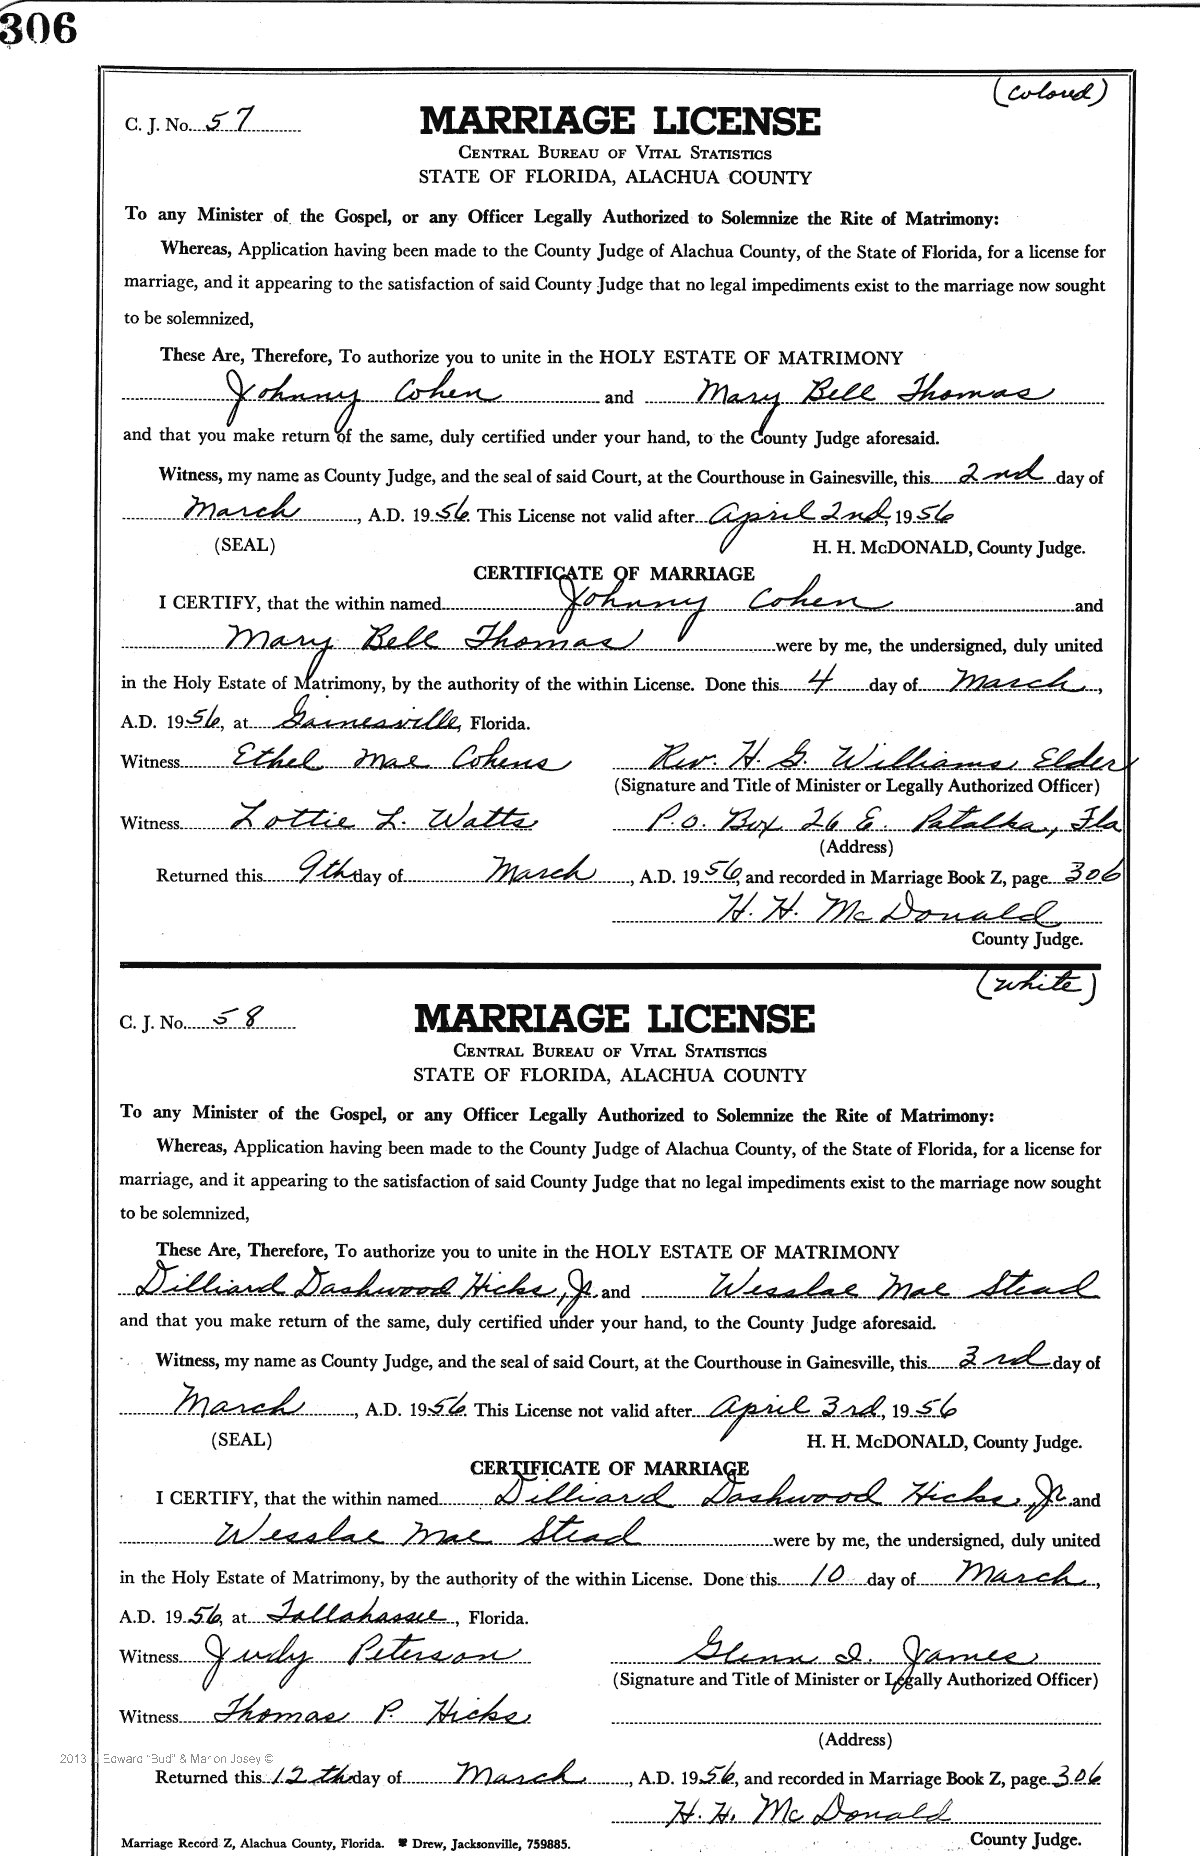 306
(colored)
C. J. No. 57
MARRIAGE LICENSE
CENTRAL BUREAU OF VITAL STATISTICS
STATE OF FLORIDA, ALACHUA COUNTY
To any Minister of the Gospel, or any Officer Legally Authorized to Solemnize the Rite of Matrimony:
Whereas, Application having been made to the County Judge of Alachua County, of the State of Florida, for a license for
marriage, and it appearing to the satisfaction of said County Judge that no legal impediments exist to the marriage now sought
to be solemnized,
These Are, Therefore, To authorize you to unite in the HOLY ESTATE OF MATRIMONY
Johnny Cohen and Mary Bell Thomas
and that you make return of the same, duly certified under your hand, to the County Judge aforesaid.
Witness, my name as County Judge, and the seal of said Court, at the Courthouse in Gainesville, this 2nd day of
March, A.D. 1956. This License not valid after April 2nd, 1956
(SEAL) H. H. McDONALD, County Judge.
CERTIFICATE OF MARRIAGE
I CERTIFY, that the within named Johnny Cohen and
Mary Bell Thomas were by me, the undersigned, duly united
in the Holy Estate of Matrimony, by the authority of the within License. Done this 4 day of March,
A.D. 1956, at Gainesville, Florida.
Witness Ethel Mae Cohens Rev. H. G. Williams Elder
(Signature and Title of Minister or Legally Authorized Officer)
Witness Lottie L. Watts P.O. Box 26 E. Patalka, Fla
(Address)
Returned this 9th day of March, A.D. 1956, and recorded in Marriage Book Z, page 306
H. H. McDonald
County Judge.
(white)
C. J. No. 58
MARRIAGE LICENSE
CENTRAL BUREAU OF VITAL STATISTICS
STATE OF FLORIDA, ALACHUA COUNTY
To any Minister of the Gospel, or any Officer Legally Authorized to Solemnize the Rite of Matrimony:
Whereas, Application having been made to the County Judge of Alachua County, of the State of Florida, for a license for
marriage, and it appearing to the satisfaction of said County Judge that no legal impediments exist to the marriage now sought
to be solemnized,
These Are, Therefore, To authorize you to unite in the HOLY ESTATE OF MATRIMONY
Dilliard Dashwood Hicks, Jr. and Wesslae Mae Stead
and that you make return of the same, duly certified under your hand, to the County Judge aforesaid.
Witness, my name as County Judge, and the seal of said Court, at the Courthouse in Gainesville, this 3rd day of
March, A.D. 1956. This License not valid after April 3rd, 1956
(SEAL) H. H. McDONALD, County Judge.
CERTIFICATE OF MARRIAGE
I CERTIFY, that the within named Dilliard Dashwood Hicks, Jr. and
Wesslae Mae Stead were by me, the undersigned, duly united
in the Holy Estate of Matrimony, by the authority of the within License. Done this 10 day of March,
A.D. 1956, at Tallahassee, Florida.
Witness Judy Peterson Glenn I. James
(Signature and Title of Minister or Legally Authorized Officer)
Witness Thomas P. Hicks
(Address)
2013 Edward "Bud" & Marion Josey ©
Returned this 12th day of March, A.D. 1956, and recorded in Marriage Book Z, page 306
H. H. McDonald
County Judge.
Marriage Record Z, Alachua County, Florida. Drew, Jacksonville, 759885.